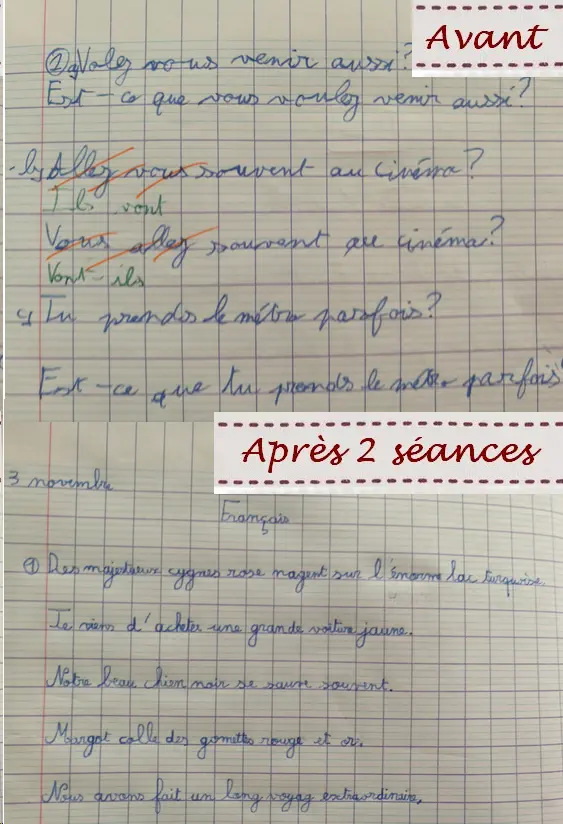 Avant
① a) Valez vous venir aussi?
Est-ce que vous voulez venir aussi?
b) Allez vous souvent au cinéma?
Ils vont
Vous allez souvent au cinéma?
Vont-ils
c) Tu prends le métro parfois?
Est-ce que tu prends le métro parfois?
Après 2 séances
3 novembre
Français
① Des majestueux cygnes rose nagent sur l'énorme lac turquoise.
Je viens d'acheter une grande voiture jaune.
Notre beau chien noir se sauve souvent.
Margot colle des gomettes rouge et or.
Nous avons fait un long voyag extraordinaire,